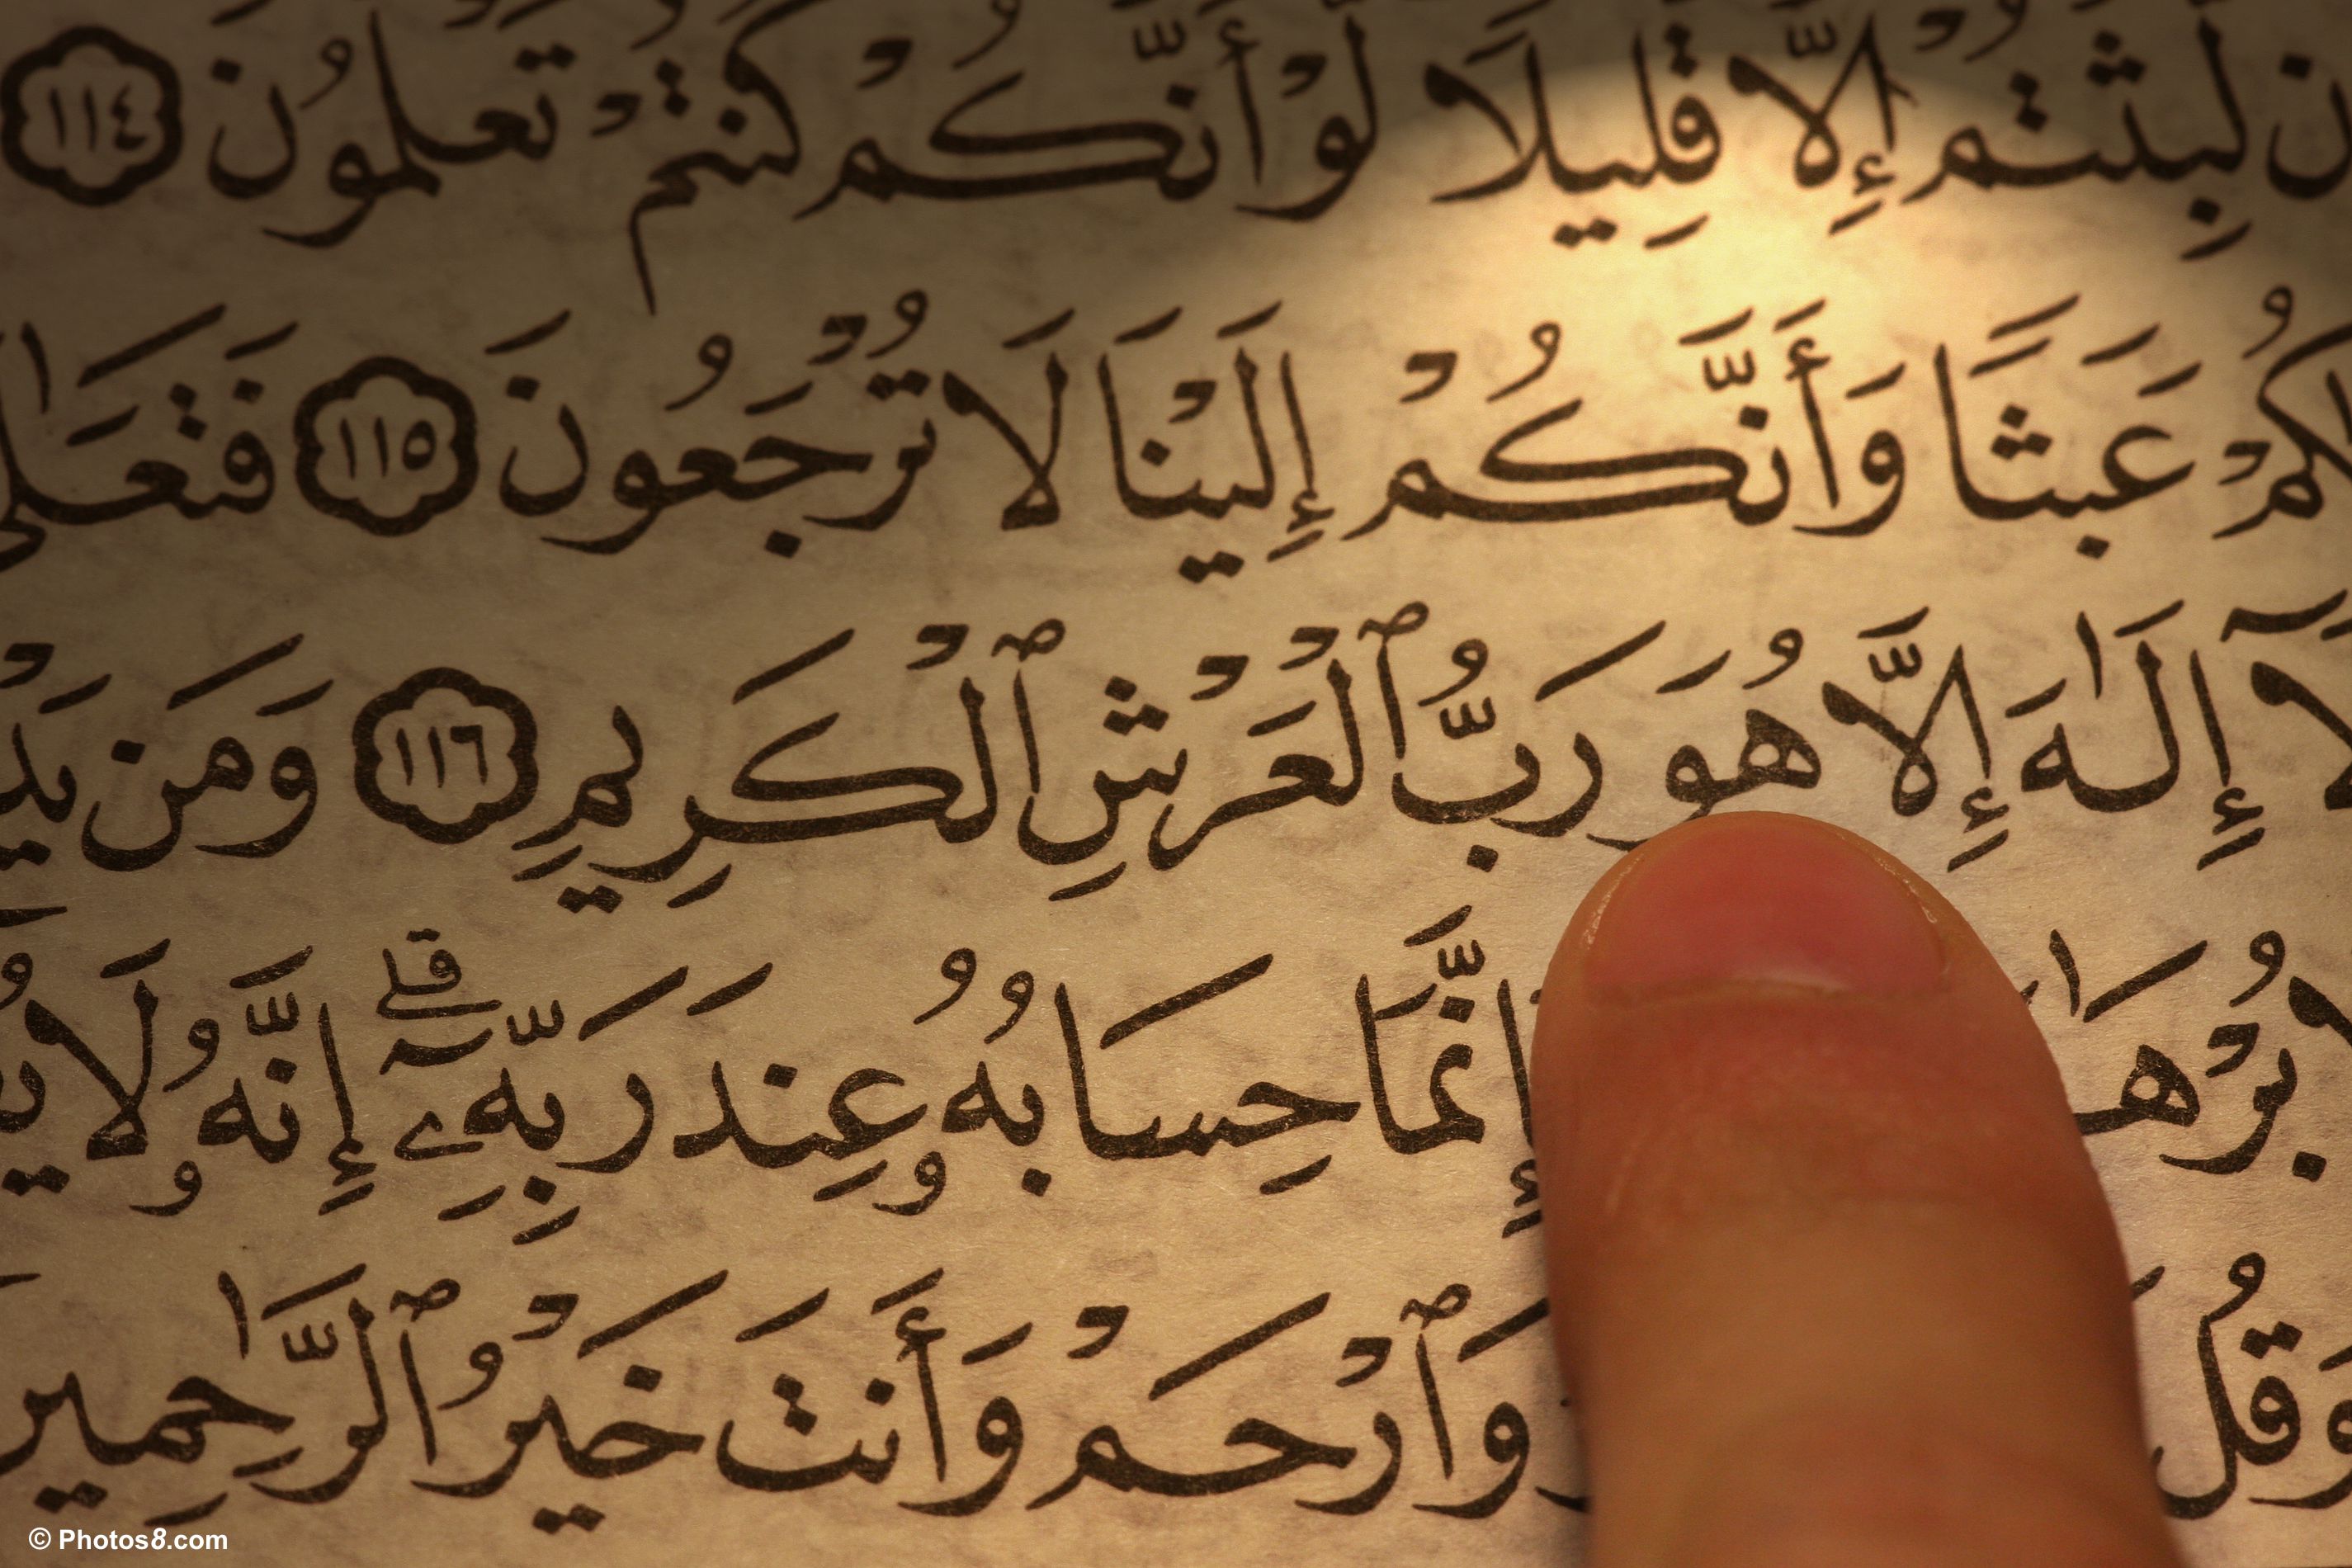 لَّبِثْتُمْ إِلَّا قَلِيلًا لَّوْ أَنَّكُمْ كُنتُمْ تَعْلَمُونَ ١١٤
عَبَثًا وَأَنَّكُمْ إِلَيْنَا لَا تُرْجَعُونَ ١١٥ فَتَعَٰلَى
لَآ إِلَٰهَ إِلَّا هُوَ رَبُّ ٱلْعَرْشِ ٱلْكَرِيمِ ١١٦ وَمَن
إِنَّمَا حِسَابُهُۥ عِندَ رَبِّهِۦٓ ۗ إِنَّهُۥ لَا
وَقُل وَٱرْحَمْ وَأَنتَ خَيْرُ ٱلرَّٰحِمِين
© Photos8.com